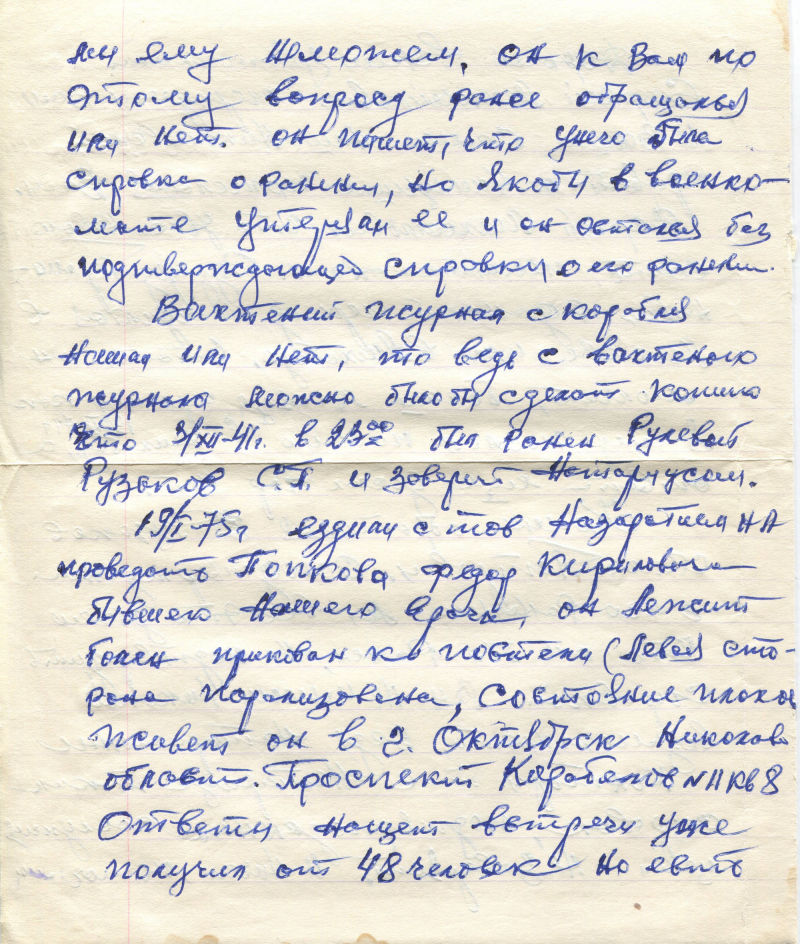 ми ему неможем, он к Вам по
этому вопросу ранее обращался
или нет. он пишет, что унего была
справка о ранении, но якобы в военко-
мате утерян ее и он остался без
подтверждающей справки о его ранении.
Вахтений журнал с корабля
нашли или нет, то ведь с вахтеного
журнала можно былобы сделать копию
что 3/XII-41г. в 23⁰⁰ был ранен Рулевой
Рузаков С.П. и заверит Натариусом.
19/I-75г ездили с тов Назаратием НА
проведать Попкова Федор Кириловича
бывшего нашего врача, он лежит
болен прикован к постели (левая сто-
рона парализована, состояние плохое
живет он в г. Октябрск Николаев
област. Проспект Корабелов №11 кв 8
Ответы нащет встречи уже
получил от 48 человек но евть